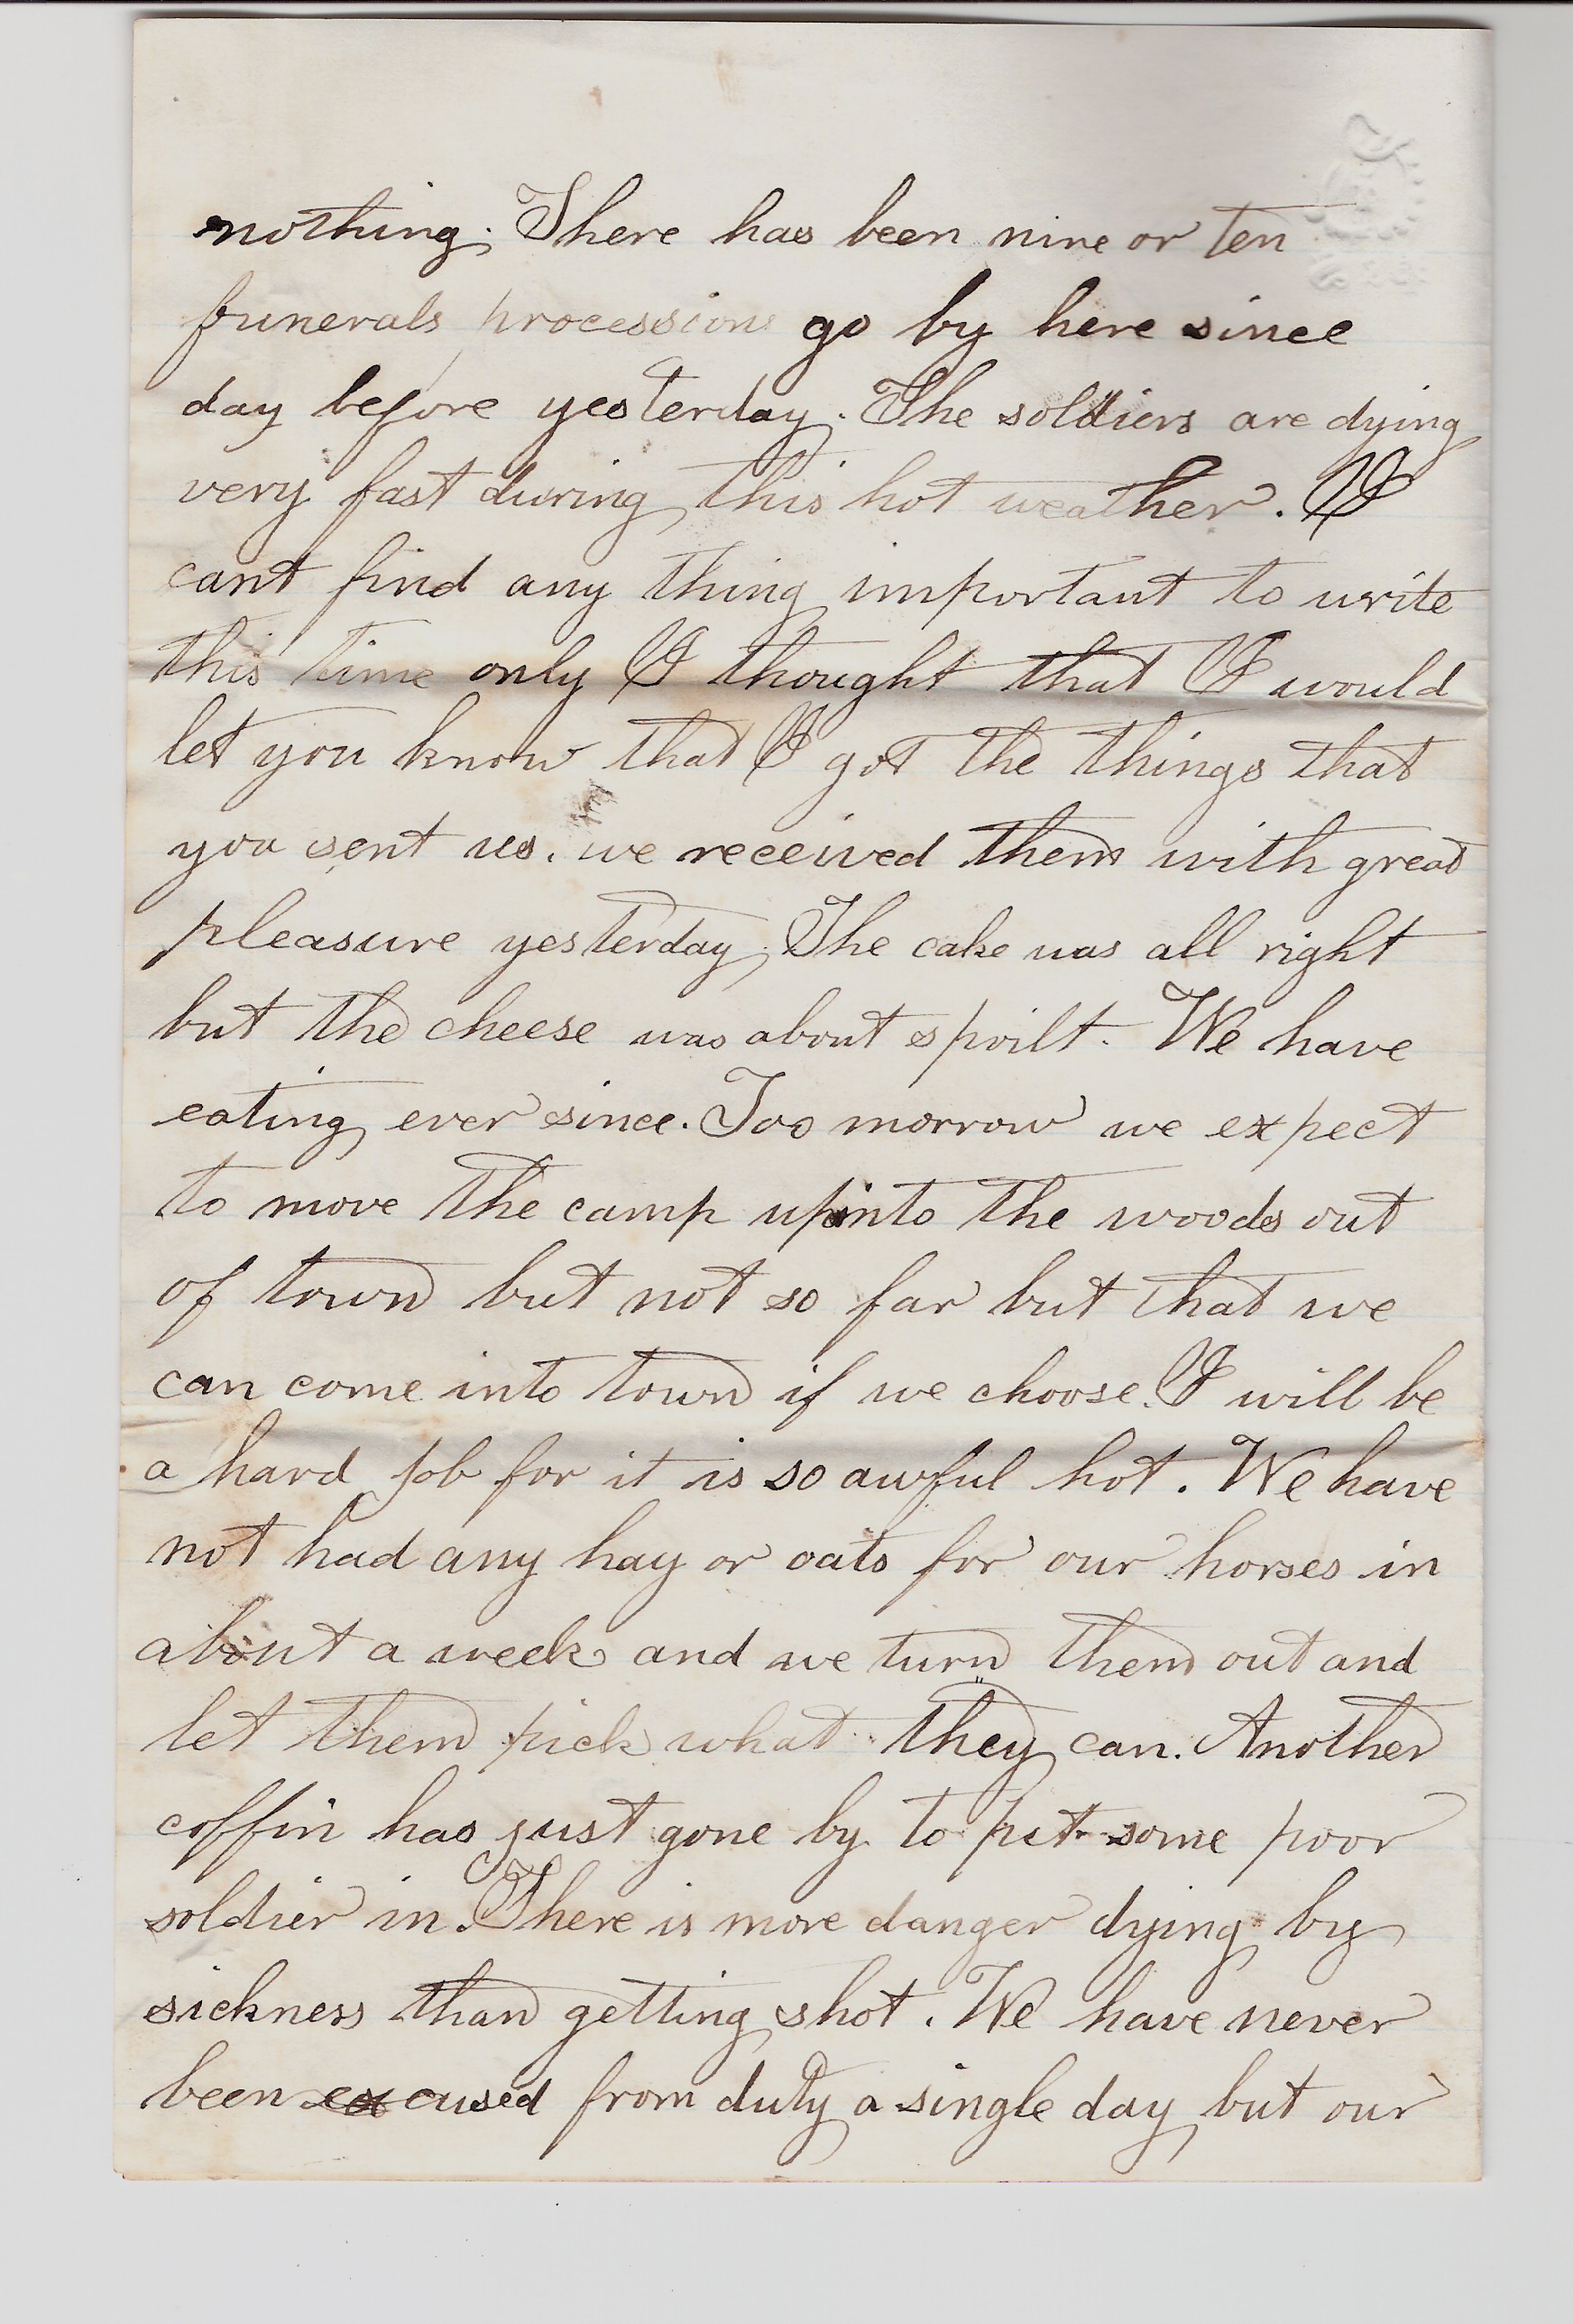 nothing. There has been nine or ten
funerals processions go by here since
day before yesterday. The soldiers are dying
very fast during this hot weather. I
cant find any thing important to write
this time only I thought that I would
let you know that I got the things that
you sent us. we received them with great
pleasure yesterday. The cake was all right
but the cheese was about spoilt. We have
eating ever since. Too morrow we expect
to move the camp up into the woods out
of town but not so far but that we
can come into town if we choose. I will be
a hard job for it is so awful hot. We have
not had any hay or oats for our horses in
about a week and we turn them out and
let them pick what they can. Another
coffin has just gone by to put some poor
soldier in. There is more danger dying by
sickness than getting shot. We have never
been excused from duty a single day but our